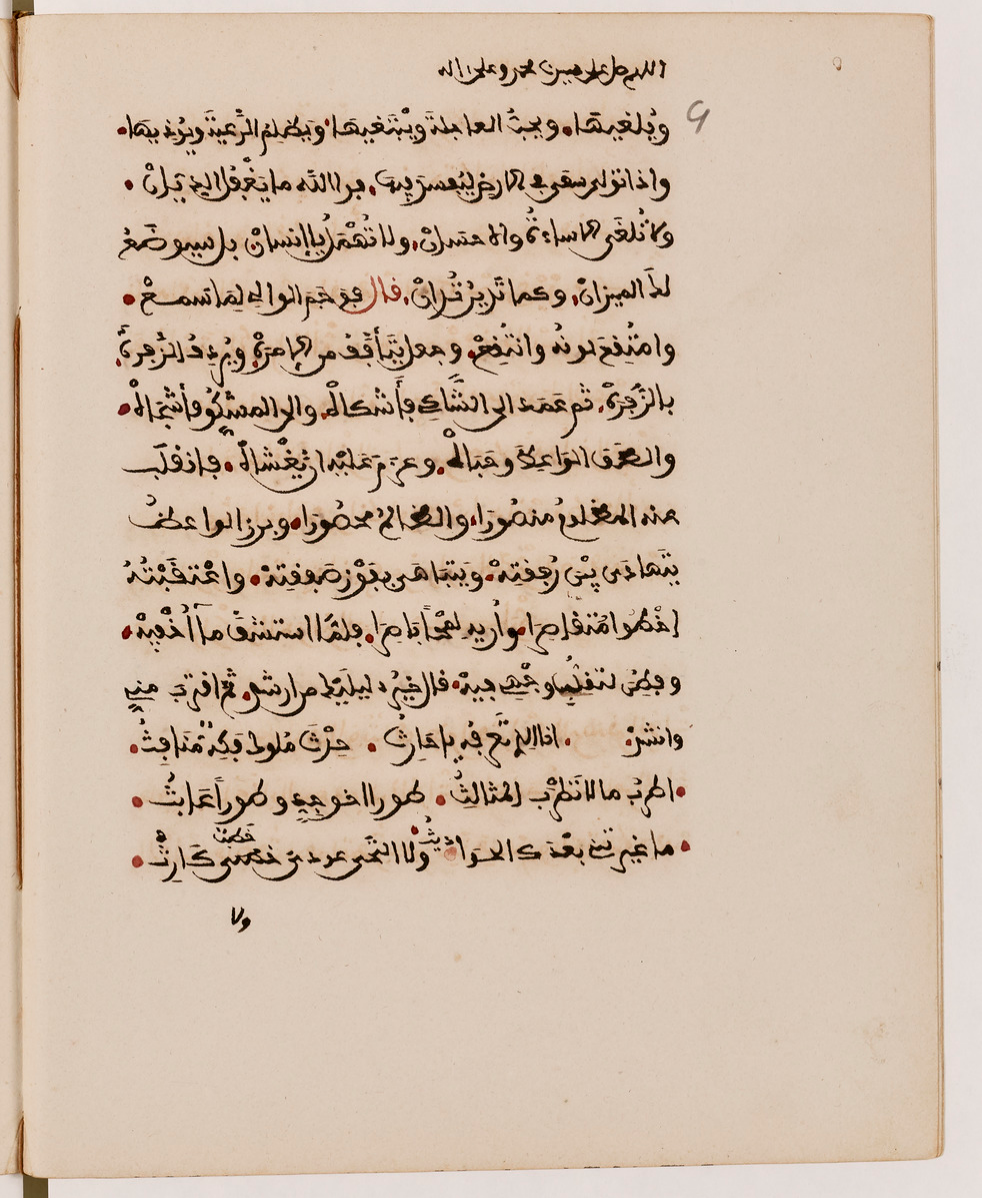 اللهم صل على سيدنا محمد وعلى ءاله
ويلغيها. ويحب العاجلة ويبتغيها. ويظلم الرعية ويؤذيها.
واذا تولى سعى في الارض ليفسد فيها. فوالله ما يغفل الديّان.
ولا تلغى الاساءة والاحسان. ولا تهمل يا إنسان بل سيوضع
لك الميزان. وكما تدين تدان. قال فوجم الوالي لما سمع.
وامتقع لونه وانتقع. وجعل يتأفف من الامرة. ويردف الزفرة
بالزفرة. ثم عمد الى الشاكي فأشكاه. والى المشكو فأشجاه.
والطف الواعظ وحباه. وعزم عليه ان يغشاه. فانقلب
عنه المظلوم منصورا. والظالم محصورا. وبرز الواعظ
يتهادى بين رفقته. ويتباهى بفوز صفقته. واعتقبته
اخطوا متقاصرا. واريه لمحا باصرا. فلما استشف ما أخفيه.
وفطن لتقلب وجهي فيه. قال خير دليليك من ارشد. ثم اقترب مني
وانشد. انا الذي تعرفه يا حارث. حدث ملوك فكه منافث.
اطرب ما لا تطرب المثالث. طورا اخو جد وطورا عابث.
ما غيرتني بعدك الحوادث. ولا التحى عودي خطب كارث.
ولا